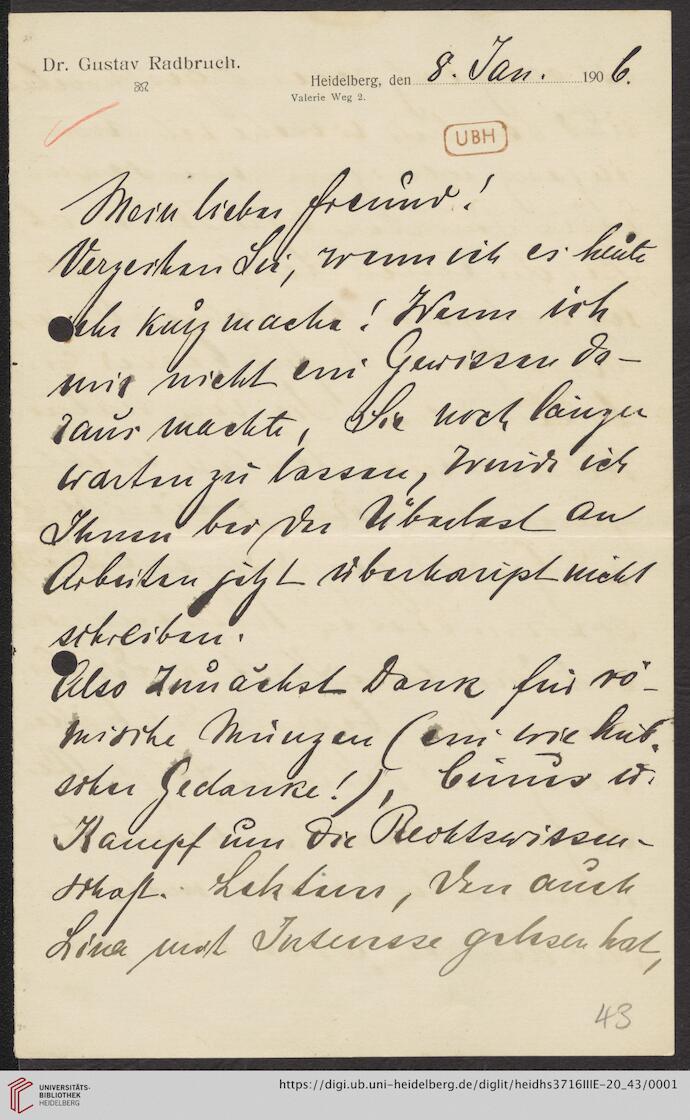 Dr. Gustav Radbruch.
Heidelberg, den 8. Jan. 1906.
Valerie Weg 2.
UBH
Mein lieber Freund!
Verzeihen Sie, wenn ich es heute
sehr kurz mache! Wenn ich
mir nicht ein Gewissen da-
raus machte, Sie noch länger
warten zu lassen, würde ich
Ihnen bei der Überlast an
Arbeiten jetzt überhaupt nicht
schreiben.
Also zunächst Dank für rö-
mische Münzen (ein wie hüb-
scher Gedanke!), u.
Kampf um die Rechtswissen-
schaft. Letztern, den auch
Lina mit Interesse gelesen hat,
43
UNIVERSITÄTS-
BIBLIOTHEK
HEIDELBERG
https://digi.ub.uni-heidelberg.de/diglit/heidhs3716IIIE-20_43/0001